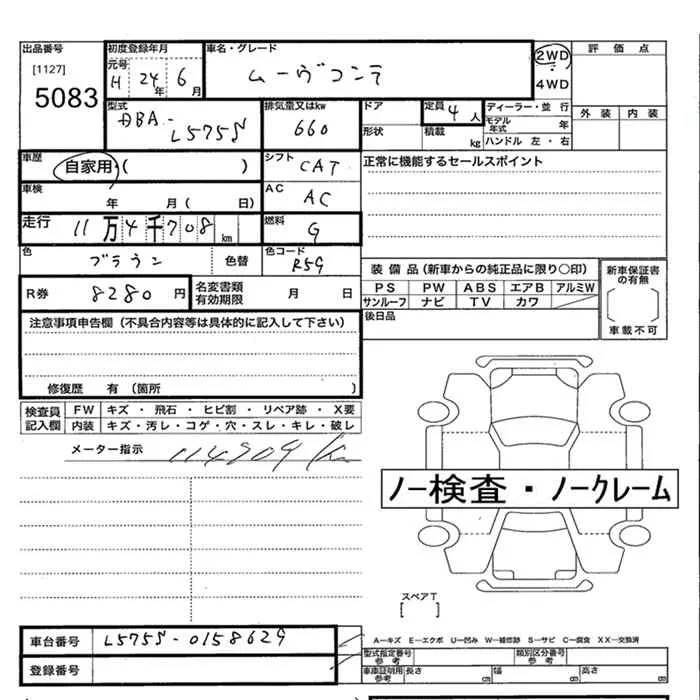 出品番号 初度登録年月 車名・グレード 2WD 評価点
[1127] 元号 H 24年 6月 ムーヴコンテ
5083 4WD
型式 DBA-L575S 排気量又はkw 660 ドア 定員 4人 ディーラー・並行 外装 内装
形状 積載 kg モデル年式 年
ハンドル 左・右
車歴 自家用・( ) シフト CAT 正常に機能するセールスポイント
車検 年 月( 日) AC AC
走行 11万4千708km 燃料 G
色 ブラウン 色替 色コード R59 装備品(新車からの純正品に限り○印) 新車保証書の有無
R券 8280円 名変書類有効期限 月 日 PS PW ABS エアB アルミW
サンルーフ ナビ TV カワ 車載不可
注意事項申告欄(不具合内容等は具体的に記入して下さい) 後日品
修復歴 有(箇所 )
検査員記入欄 FW キズ・飛石・ヒビ割・リペア跡・X要
内装 キズ・汚レ・コゲ・穴・スレ・キレ・破レ
メーター指示
ノー検査・ノークレーム
スペアT
[ ]
車台番号 L575S-0158629 A-キズ E-エクボ U-凹み W-補修跡 S-サビ C-腐食 XX-交換済
登録番号 型式指定番号 参考 類別区分番号 参考
車庫証明用参考 長さ 幅 高さ